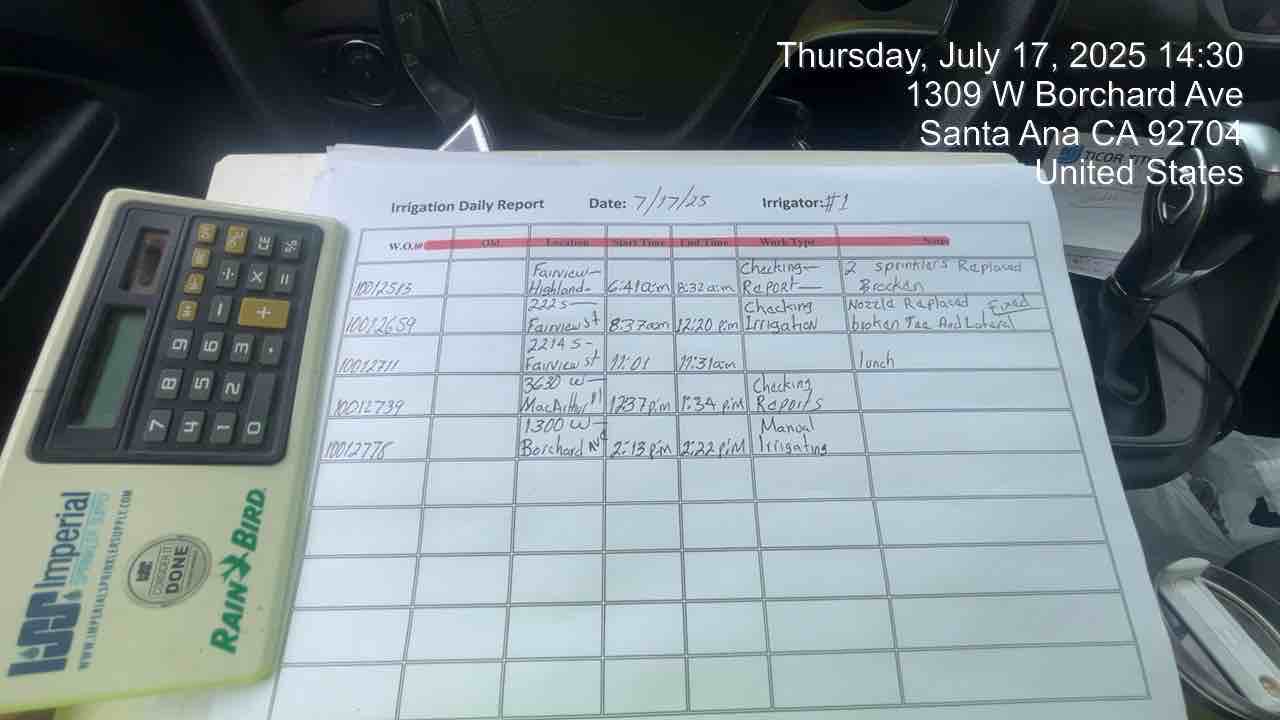 Thursday, July 17, 2025 14:30
1309 W Borchard Ave
Santa Ana CA 92704
United States
TICOR TIT
Irrigation Daily Report Date: 7/17/25 Irrigator: #1
W.O.# Old Location Start Time End Time Work Type Notes
10012513 Fairview Highland 6:41a:m 8:32a:m Checking Report 2 sprinklers Replaced Brocken
10012659 222 S Fairview st 8:37am 12:20 p:m Checking Irrigation Nozzle Replaced Fixed broken Tee And Lateral
10012711 2214 S- Fairview st 11:01 11:31am lunch
10012739 3630 W MacArthur Pl 12:37 p:m 1:34 p:m Checking Reports
10012778 1300 W Borchard Ave 2:13 p:m 2:22 p:m Manual Irrigating
% = +
CE × −
÷
. 3 6 9
2 5 8
0 1 4 7
Imperial
SPRINKLER SUPPLY
WWW.IMPERIALSPRINKLERSUPPLY.COM
CONSIDER IT
DONE
RAIN BIRD